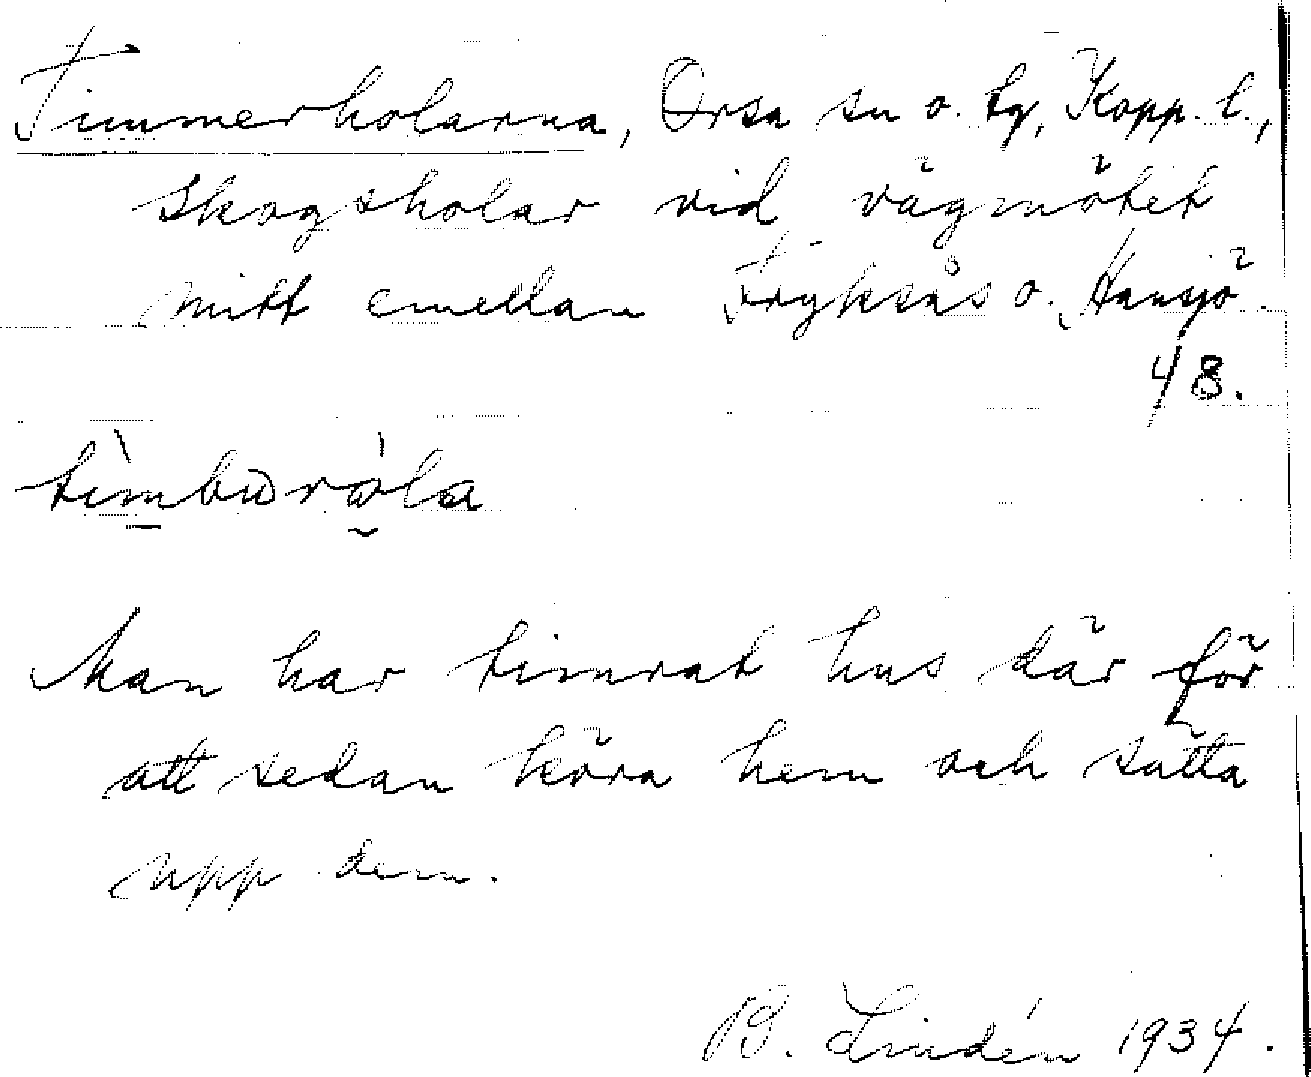 Timmerholarna, Orsa sn o. tg, Kopp. l.,
skogsholar vid vägmötet
mitt emellan Fryksås o. Hansjö
48.
Man har timrat hus där för
att sedan köra hem och sätta
upp dem.
B. Lindén 1934.